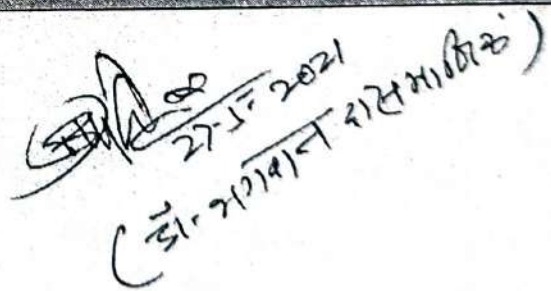 27-5-2021
(डॉ. भगवान दास मानिक)